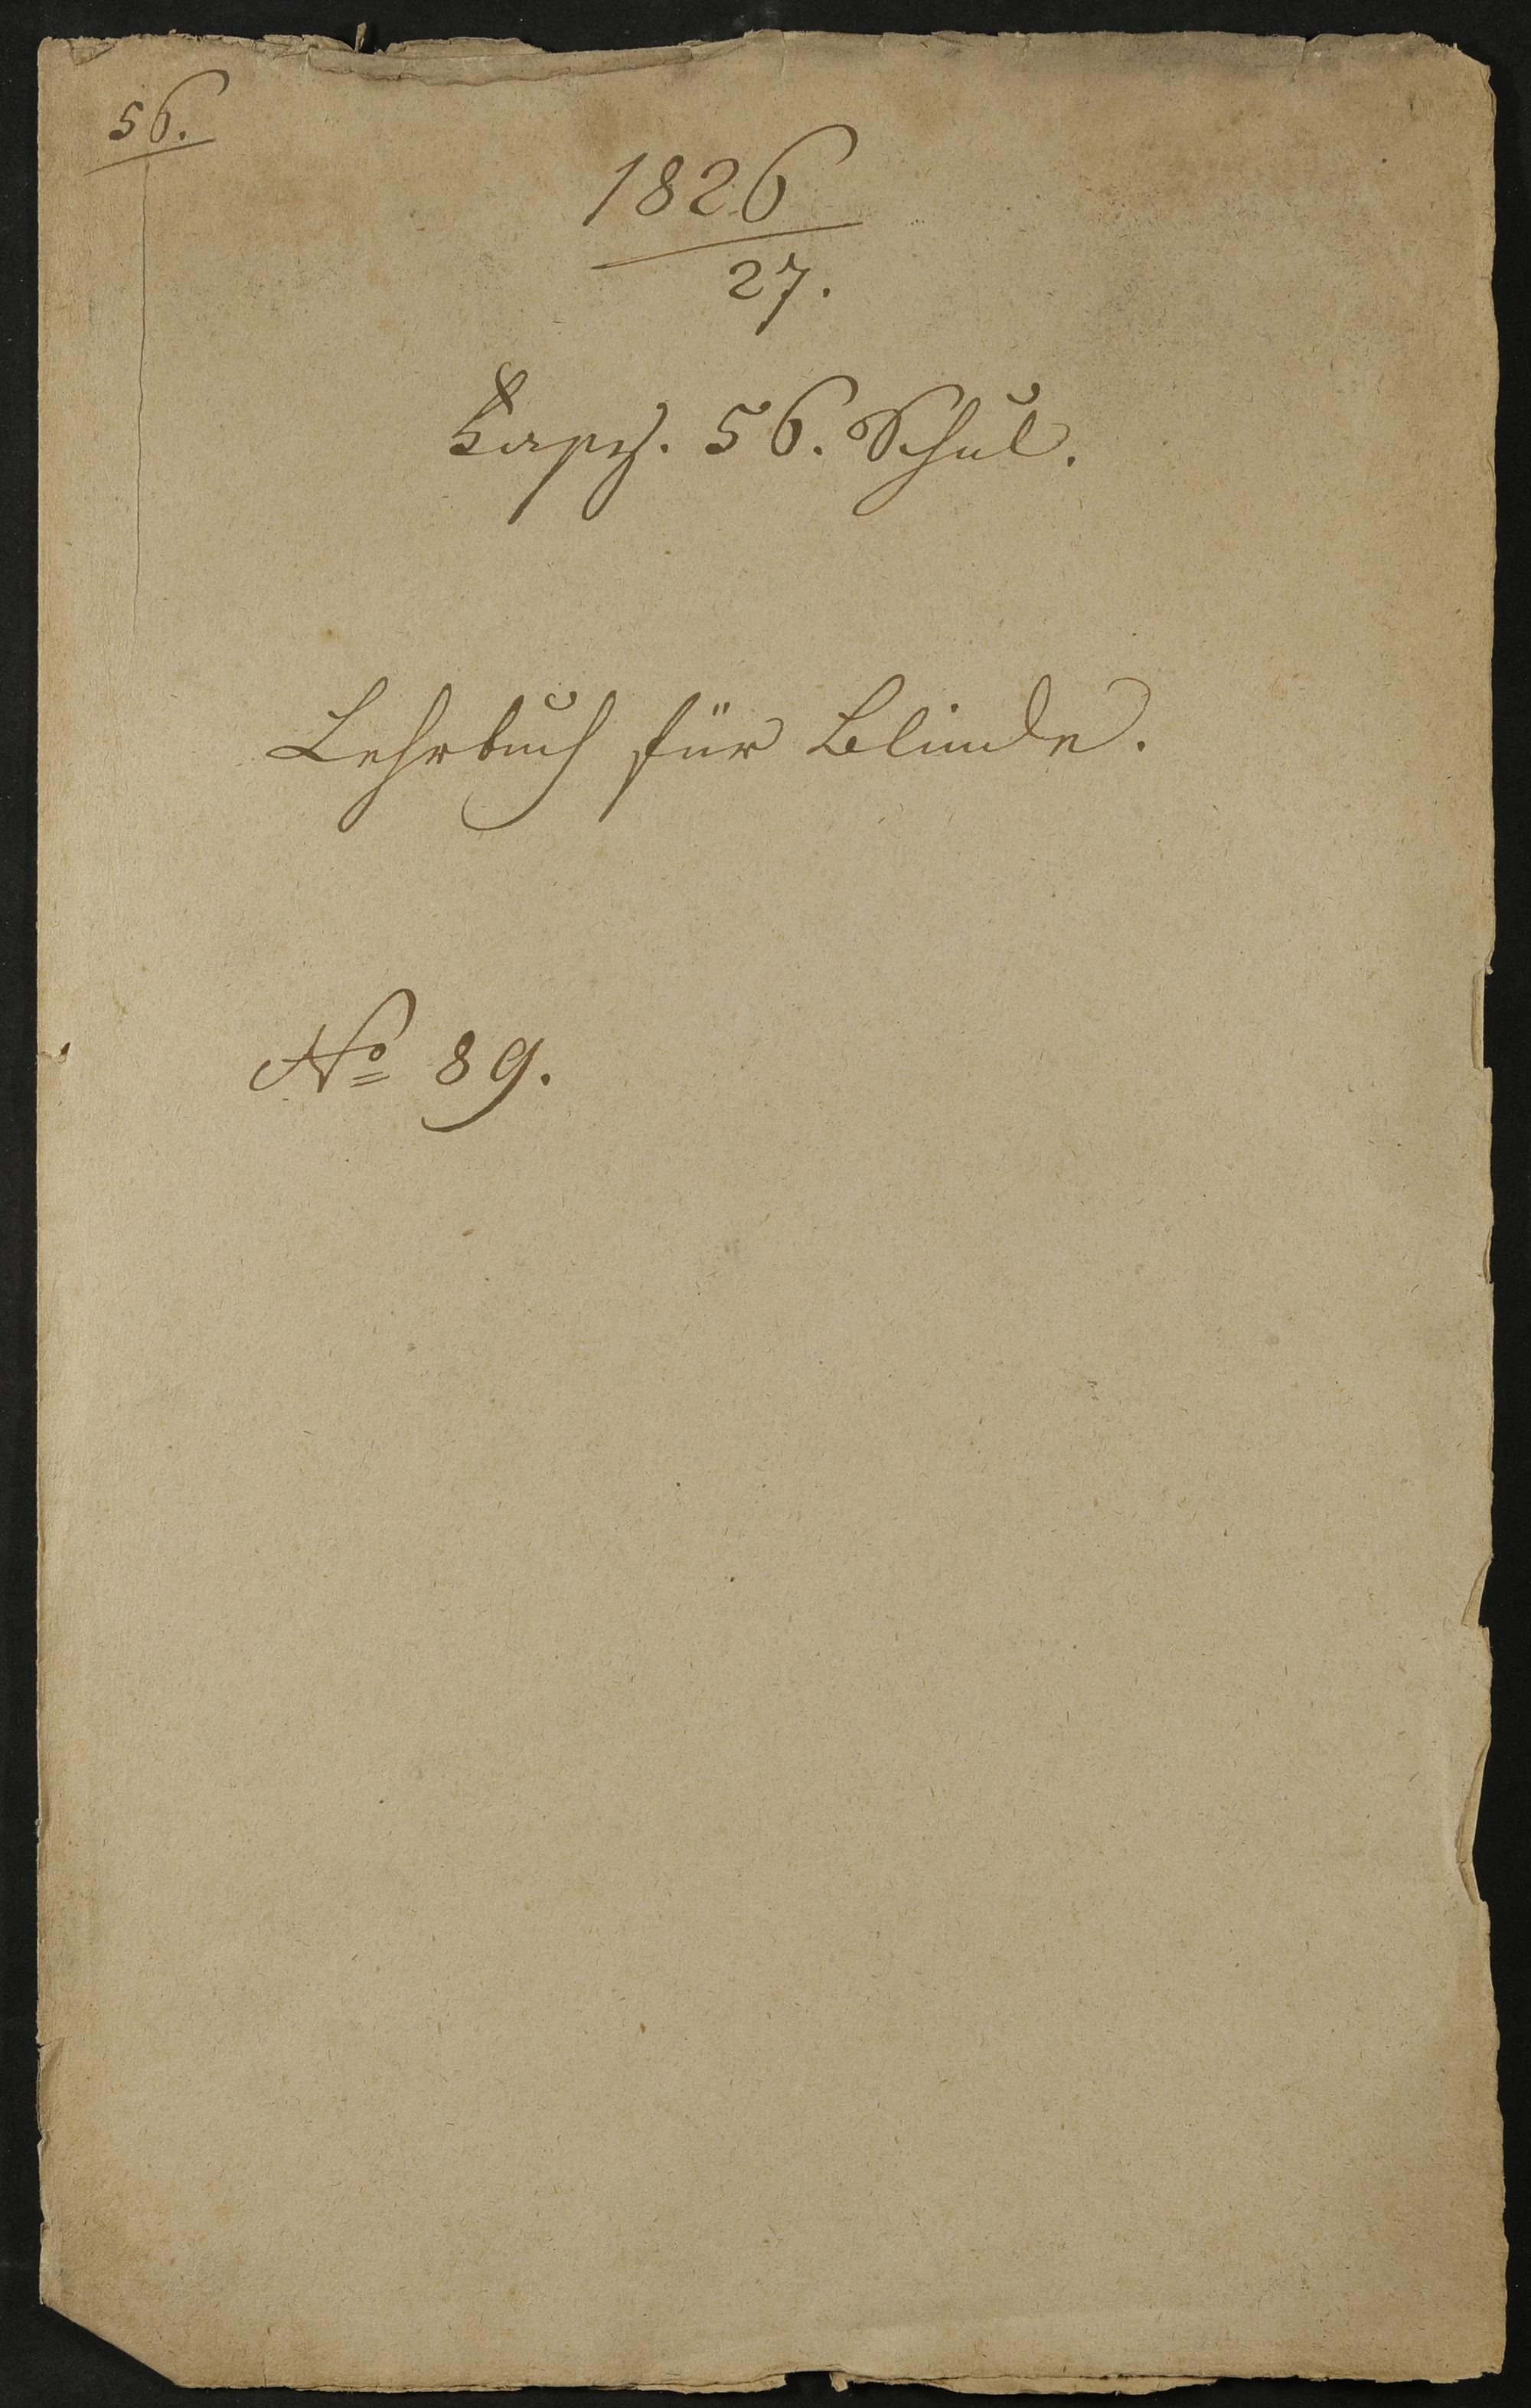 56.
1826
27.
56. Schul.
Lehrbuch für Blinde.
No 89.